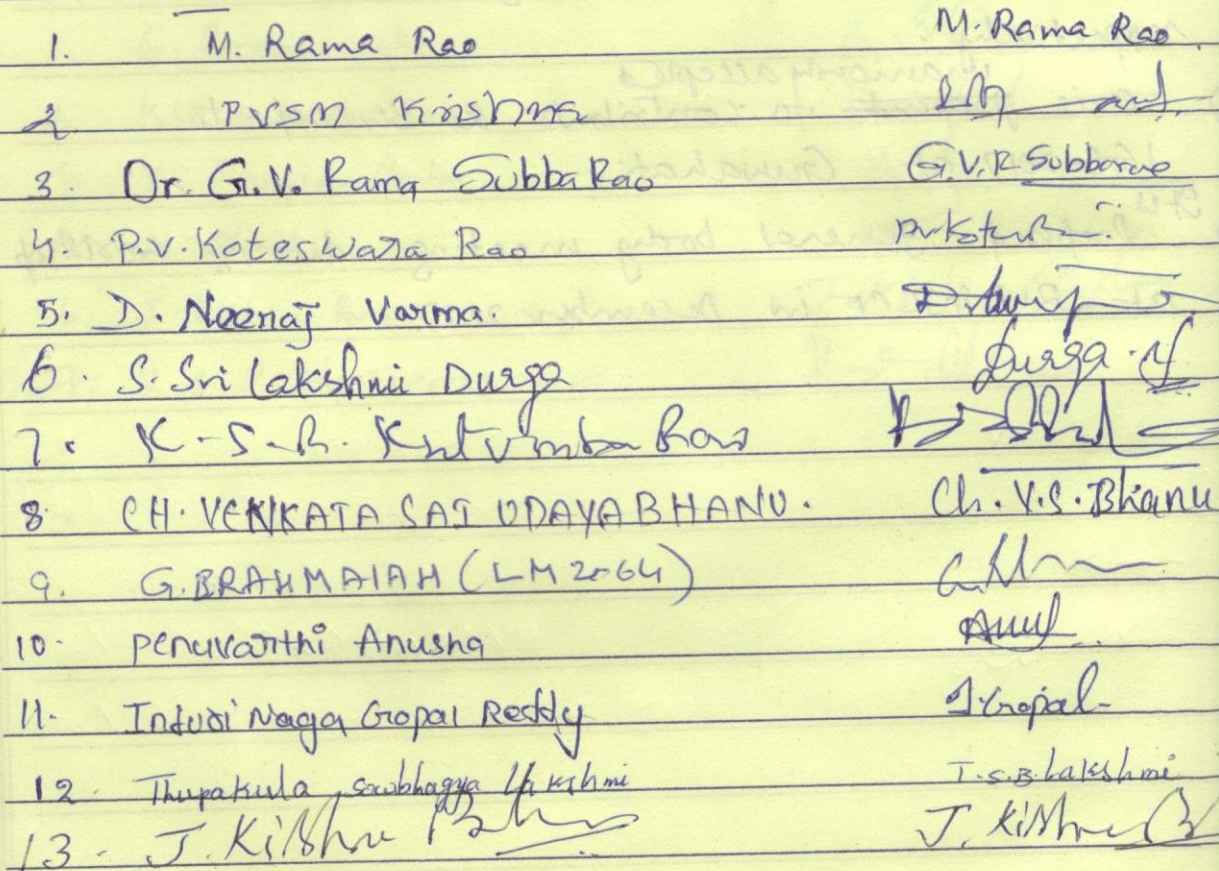 1. M. Rama Rao M. Rama Rao
2. PVSM Krishna
3. Dr. G.V. Rama Subba Rao G.V.R. Subbarao
4. P.V. Koteswara Rao
5. D. Neeraj Varma.
6. S. Sri Lakshmi Durga Durga
7. K-S-R. Kutumba Rao
8 CH. VENKATA SAI UDAYA BHANU. Ch. V.S. Bhanu
9. G. BRAHMAIAH (LM 2064)
10. Penuvarthi Anusha
11. Induri Naga Gopal Reddy I. Gopal
12. Thupakula Sowbhagya Lakshmi T.S.B. Lakshmi
13. J. Kishore J. Kishore